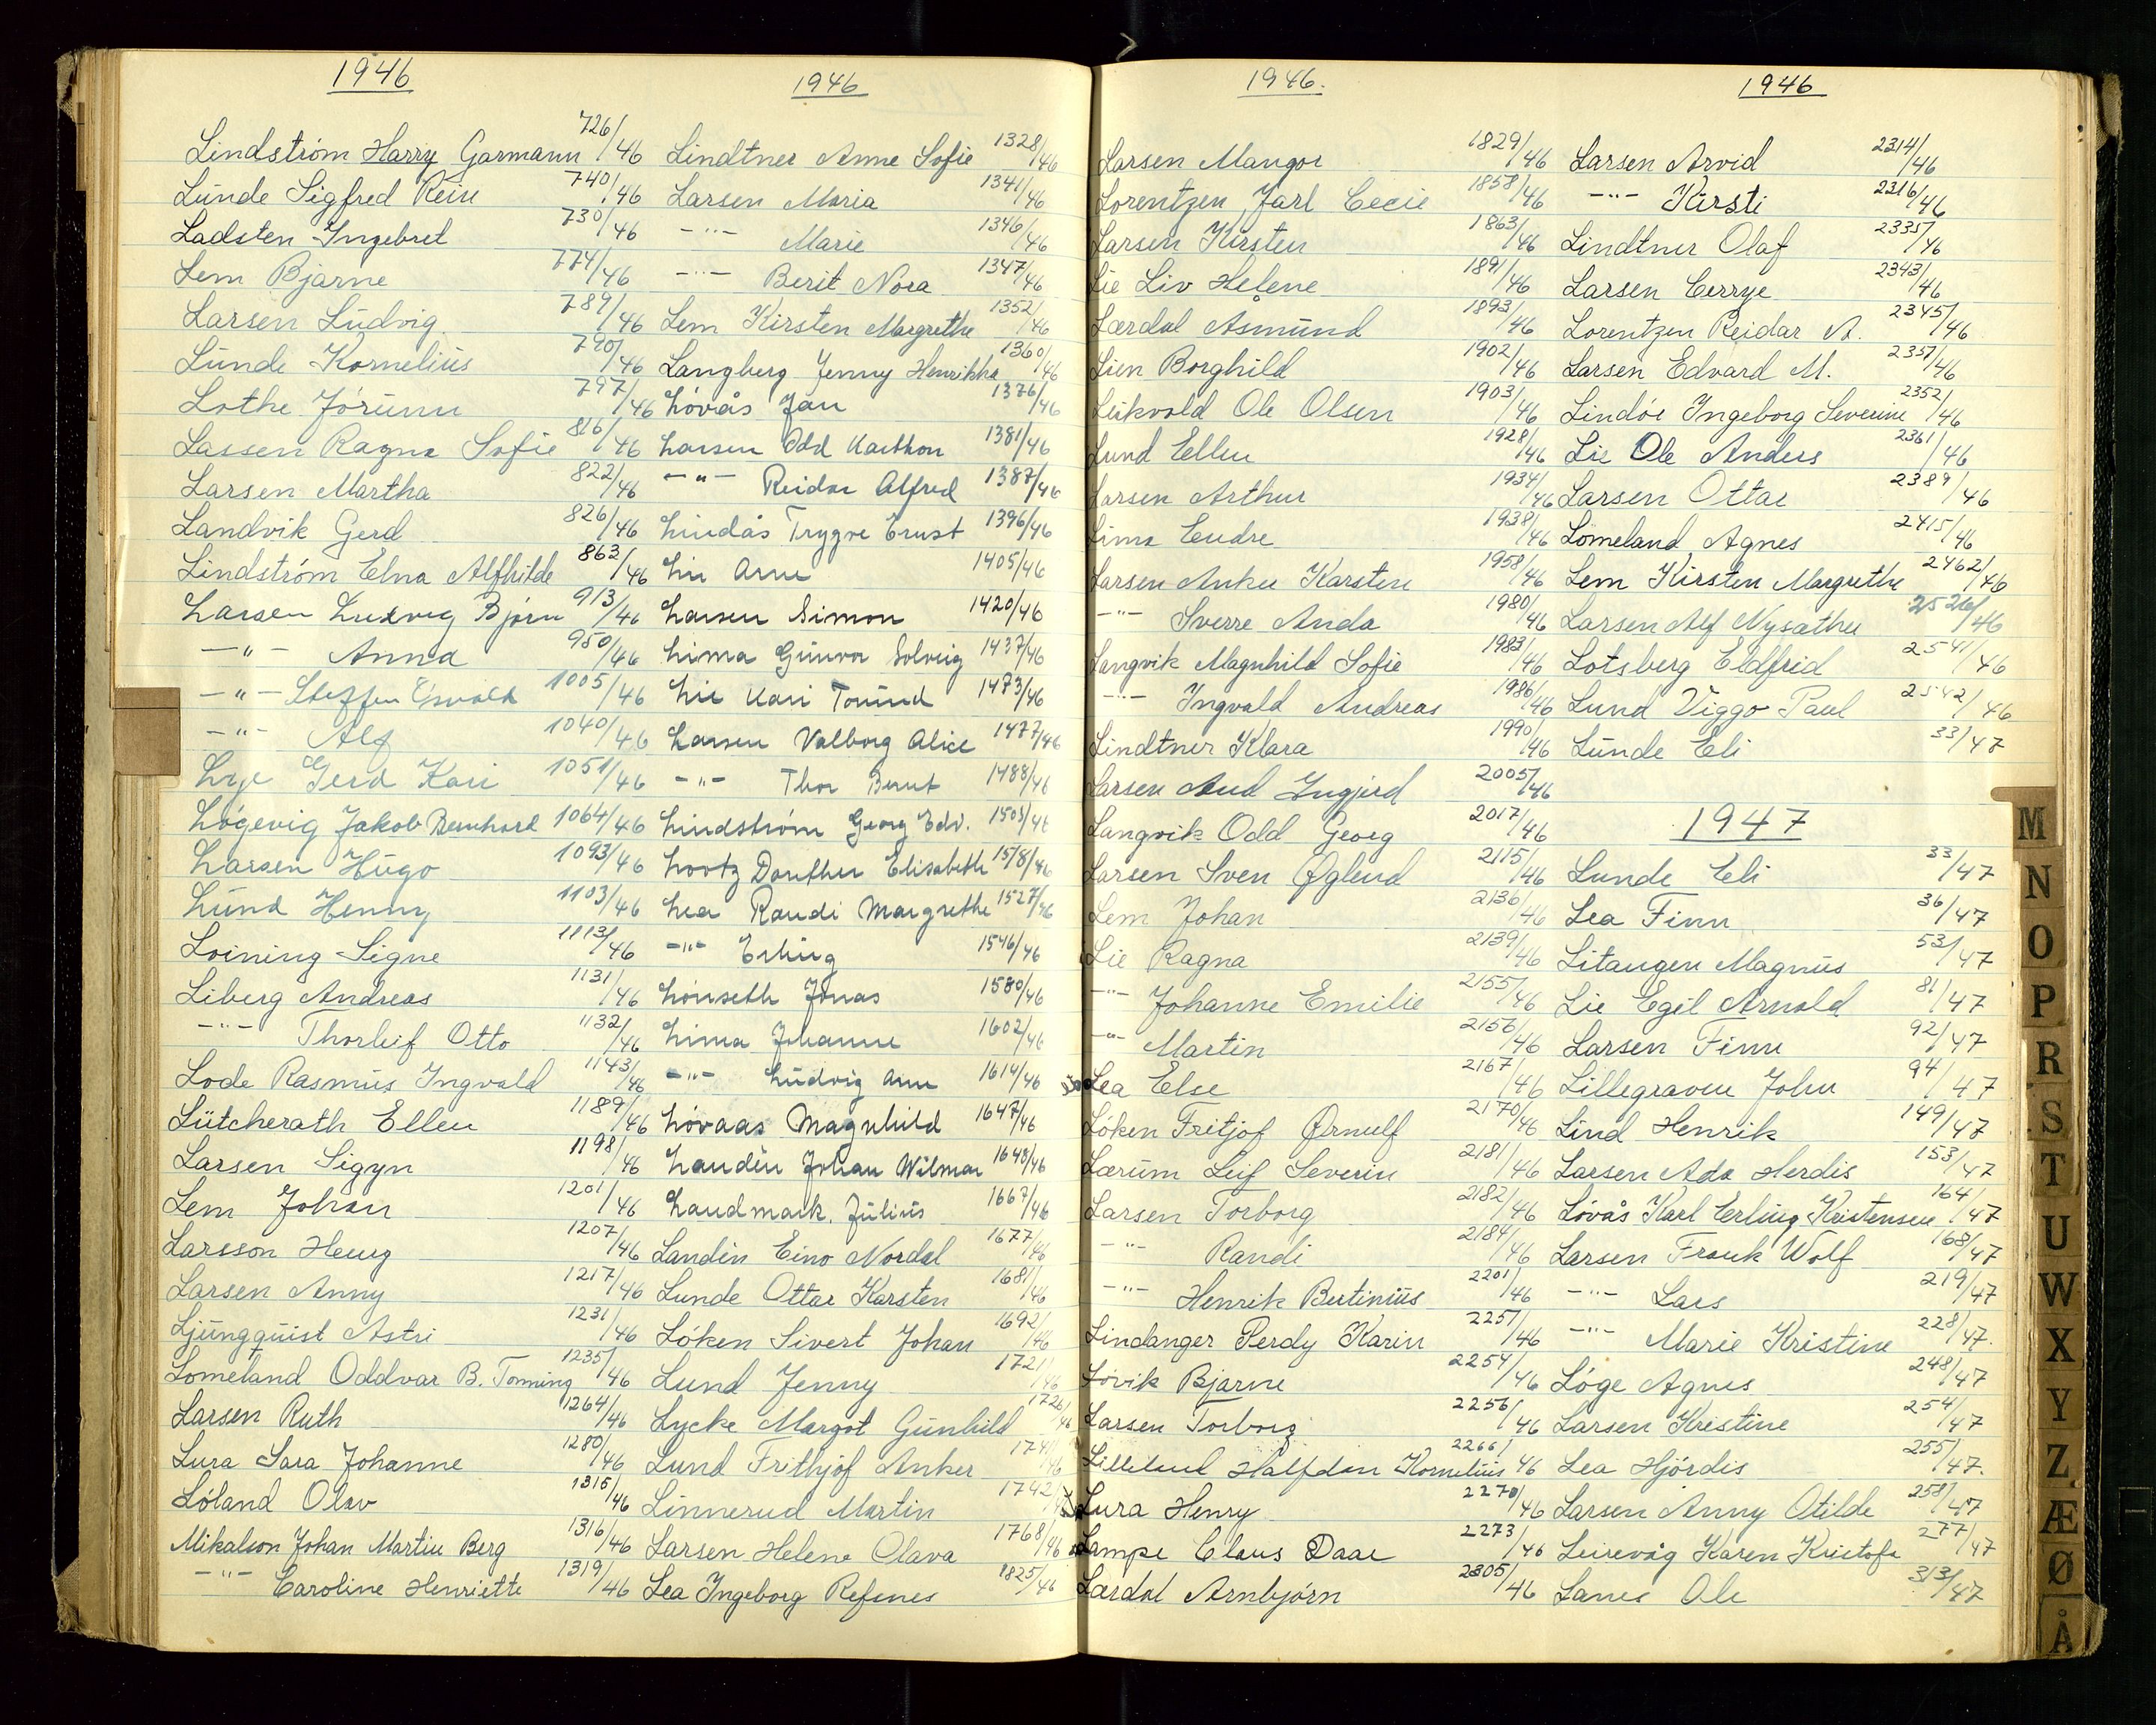 1946
Lindström Harry Garmann 726/46
Lunde Sigfred Rein 740/46
Ladsten Ingebret 730/46
Lem Bjarne 774/46
Larsen Ludvig 789/46
Lunde Kornelius 790/46
Lothe Jórunn 797/46
Lassen Ragna Sofie 816/46
Larsen Martha 822/46
Landvik Gerd 826/46
Lindström Elna Alfhilde 863/46
Larsen Ludvig Bjórn 913/46
-"- Anna 950/46
-"- Steffen Osvald 1005/46
-"- Alf 1040/46
Lye Gerd Kari 1051/46
Lógevig Jakob Bernhard 1064/46
Larsen Hugo 1093/46
Lund Henny 1103/46
Loining Signe 1113/46
Liberg Andreas 1131/46
-"- Thorleif Otto 1132/46
Lode Rasmus Ingvald 1143/46
Lütcherath Ellen 1189/46
Larsen Sigyn 1198/46
Lem Johan 1201/46
Larsson Henry 1207/46
Larsen Anny 1217/46
Ljungquist Astri 1231/46
Lomeland Oddvar B. Tonning 1235/46
Larsen Ruth 1264/46
Lura Sara Johanne 1280/46
Lóland Olav 1315/46
Mikalson Johan Martin Berg 1316/46
-"- Caroline Henriette 1319/46
1946
Lindtner Anne Sofie 1328/46
Larsen Maria 1341/46
-"- Marie 1346/46
-"- Berit Nora 1347/46
Lem Kirsten Margrethe 1352/46
Langberg Jenny Henrikka 1360/46
Lóvås Jan 1376/46
Larsen Odd Karthon 1381/46
-"- Reidar Alfred 1387/46
Lindås Trygve Ernst 1396/46
Lie Arne 1405/46
Larsen Simon 1420/46
Lima Gunvor Solveig 1437/46
Lie Kari Torund 1473/46
Larsen Valborg Alice 1477/46
-"- Thor Bernt 1488/46
Lindström Georg Edv. 1503/46
Lootz Dorthea Elisabeth 1518/46
Lea Randi Margrethe 1527/46
-"- Erling 1546/46
Lónseth Jonas 1580/46
Lima Johanne 1602/46
-"- Ludvig Arn 1614/46
Lóvaas Magnhild 1647/46
Landin Johan Wilmar 1648/46
Landmark Julius 1667/46
Landin Eino Nordal 1677/46
Lunde Ottar Karsten 1681/46
Lóken Sivert Johan 1692/46
Lund Jenny 1721/46
Lycke Margot Gunhild 1726/46
Lund Frithjof Anker 1741/46
Linnerud Martin 1742/46
Larsen Helene Olava 1768/46
Lea Ingeborg Refsnes 1825/46
1946.
Larsen Mangor 1829/46
Lorentzen Jarl Cecil 1858/46
Larsen Kirsten 1863/46
Lie Liv Helene 1891/46
Lærdal Åsmund 1893/46
Lien Borghild 1902/46
Leikvold Ole Olsen 1903/46
Lund Ellen 1928/46
Larsen Arthur 1934/46
Lima Endre 1938/46
Larsen Anker Karsten 1958/46
-"- Sverre Anda 1980/46
Langvik Magnhild Sofie 1983/46
-"- Ingvald Andreas 1986/46
Lindtner Klara 1990/46
Larsen Aud Ingjerd 2005/46
Langvik Odd Georg 2017/46
Larsen Sven Øglend 2115/46
Lem Johan 2136/46
Lie Ragna 2139/46
-"- Johanne Emilie 2155/46
-"- Martin 2156/46
Lea Else 2167/46
Lóken Fritjof Ørnulf 2170/46
Lærum Leif Severin 2181/46
Larsen Torborg 2182/46
-"- Randi 2184/46
-"- Henrik Bertinius 2201/46
Lindanger Perdy Karin 2251/46
Lóvik Bjarne 2254/46
Larsen Torborg 2256/46
Lillelund Halfdan Kornelius 2266/46
Lura Henry 2270/46
Lampe Claus Daae 2273/46
Lærdal Arnbjórn 2305/46
1946
Larsen Arvid 2314/46
-"- Kirsti 2316/46
Lindtner Olaf 2335/46
Larsen Cerrye 2343/46
Lorentzen Reidar A. 2345/46
Larsen Edvard M. 2351/46
Lindóe Ingeborg Severine 2352/46
Lie Ole Anders 2361/46
Larsen Ottar 2389/46
Lomeland Agnes 2415/46
Lem Kirsten Margrethe 2462/46
Larsen Alf Nysæther 2526/46
Lotsberg Eldfrid 2541/46
Lund Viggo Paul 2542/46
Lunde Eli 33/47
1947
Lunde Eli 33/47
Lea Finn 36/47
Litangen Magnus 53/47
Lie Egil Arnold 81/47
Larsen Finn 92/47
Lillegraven John 94/47
Lind Henrik 149/47
Larsen Ada Herdis 153/47
Lóvås Karl Erling Kristensen 164/47
Larsen Frank Wolf 168/47
-"- Lars 219/47
-"- Marie Kristine 228/47.
Lóge Agnes 248/47
Larsen Kristine 254/47
Lea Hjórdis 255/47.
Larsen Anny Otilde 258/47
Leirevåg Karen Kristofa 277/47
Lanes Ole 313/47
M
N
O
P
R
S
T
U
W
X
Y
Z
Æ
Ø
Å